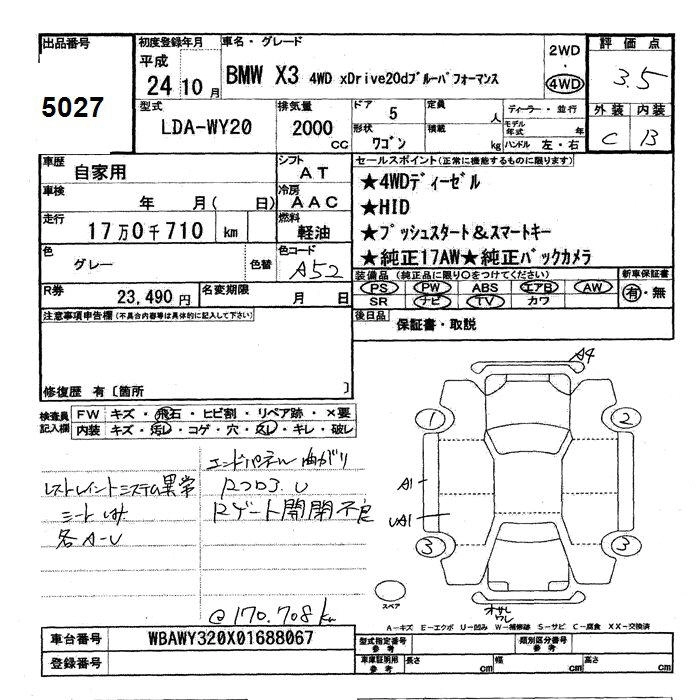 出品番号
5027
初度登録年月
平成
24 10 月
車名・グレード
BMW X3 4WD xDrive20dブルーパフォーマンス
2WD
・
4WD
評価点
3.5
型式
LDA-WY20
排気量
2000
CC
ドア 5
形状
ワゴン
定員
人
積載
kg
ディーラー・並行
モデル
年式 年
ハンドル 左・右
外装 内装
C B
車歴
自家用
シフト
AT
車検
年 月( 日)
冷房
AAC
走行
17万0千710 km
燃料
軽油
色
グレー
色替
色コード
A52
R券
23,490 円
名変期限
月 日
セールスポイント(正常に機能するものに限ります)
★4WDディーゼル
★HID
★プッシュスタート&スマートキー
★純正17AW★純正バックカメラ
装備品(純正品に限り○をつけてください)
PS PW ABS エアB AW
SR ナビ TV カワ
新車保証書
有・無
後日品
保証書・取説
注意事項申告欄(不具合内容等は具体的に記入して下さい)
修復歴 有〔箇所 〕
検査員
記入欄
FW キズ・飛石・ヒビ割・リペア跡・×要
内装 キズ・汚レ・コゲ・穴・スレ・キレ・破レ
レストレイントシステム異常
各A-U
エンドパネル曲がり
Rゲート開閉不良
@170.708km
A4
1
2
A1
UA1
3
3
スペア
A-キズ E-エクボ U-凹み W-補修跡 S-サビ C-腐食 XX-交換済
車台番号
WBAWY320X01688067
登録番号
型式指定番号
参考
類別区分番号
参考
車庫証明用
参考
長さ cm
幅 cm
高さ cm